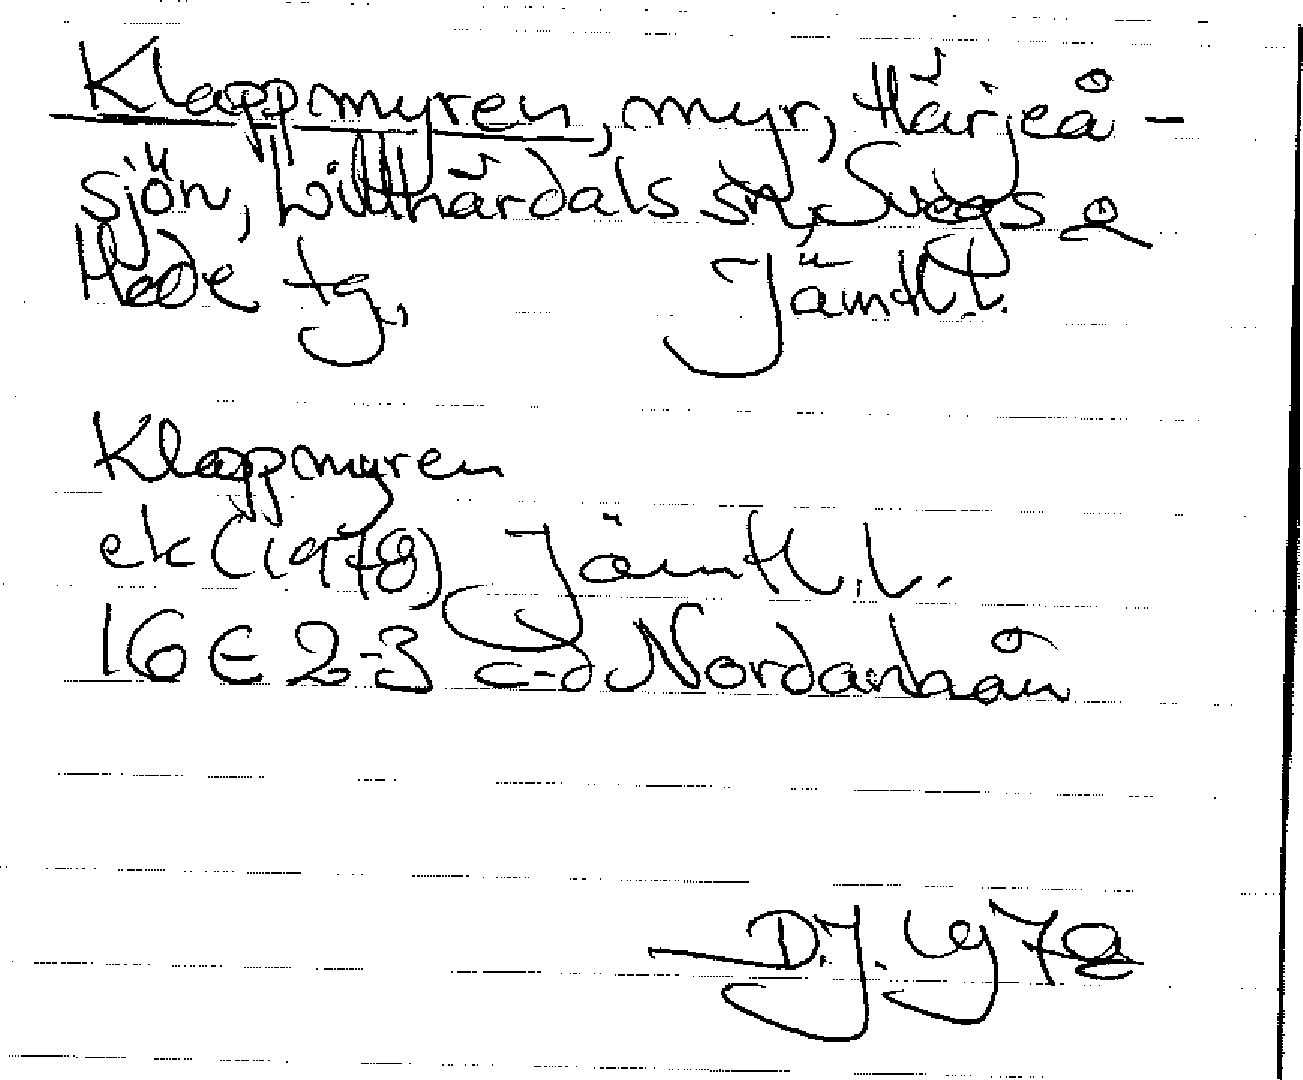 Klappmyren, myr, Härjeå-
sjön, Lillhärdals sn, Svegs o
Hede tg,    Jämtl.l.
Klappmyren
ek (1978) Jämtl.l.
16 E 2-3 c-d Nordanhåu
D.J. 1978